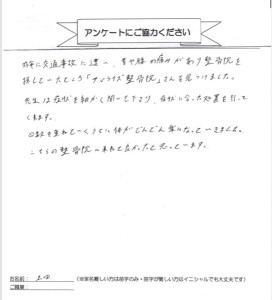 アンケートにご協力ください
昨年に交通事故に遭い、首や腰の痛みがあり整骨院を
探していたところ「サンライズ整骨院」さんを見つけました。
先生は症状を細かく聞いて下さり、症状に合った処置を行って
くれます。
回数を重ねていくうちに体がどんどん楽になっていきました。
こちらの整骨院に来れて良かったと思っています。
お名前: (※実名難しい方は苗字のみ・苗字が難しい方はイニシャルでも大丈夫です)
ご職業